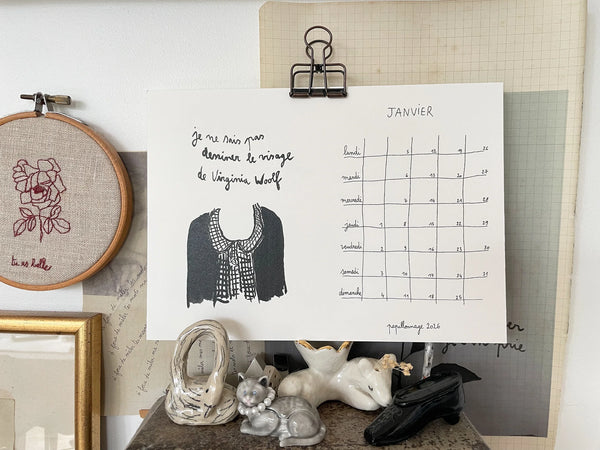 je ne sais pas
dessiner le visage
de Virginia Woolf
JANVIER
lundi 5 12 19 26
mardi 6 13 20 27
mercredi 7 14 21 28
jeudi 1 8 15 22 29
vendredi 2 9 16 23 30
samedi 3 10 17 24 31
dimanche 4 11 18 25
papillonnage 2026
tu es belle
prie